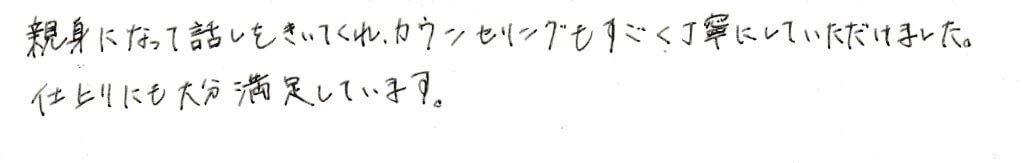 親身になって話しをきいてくれ、カウンセリングもすごく丁寧にしていただけました。
仕上りにも大分満足しています。